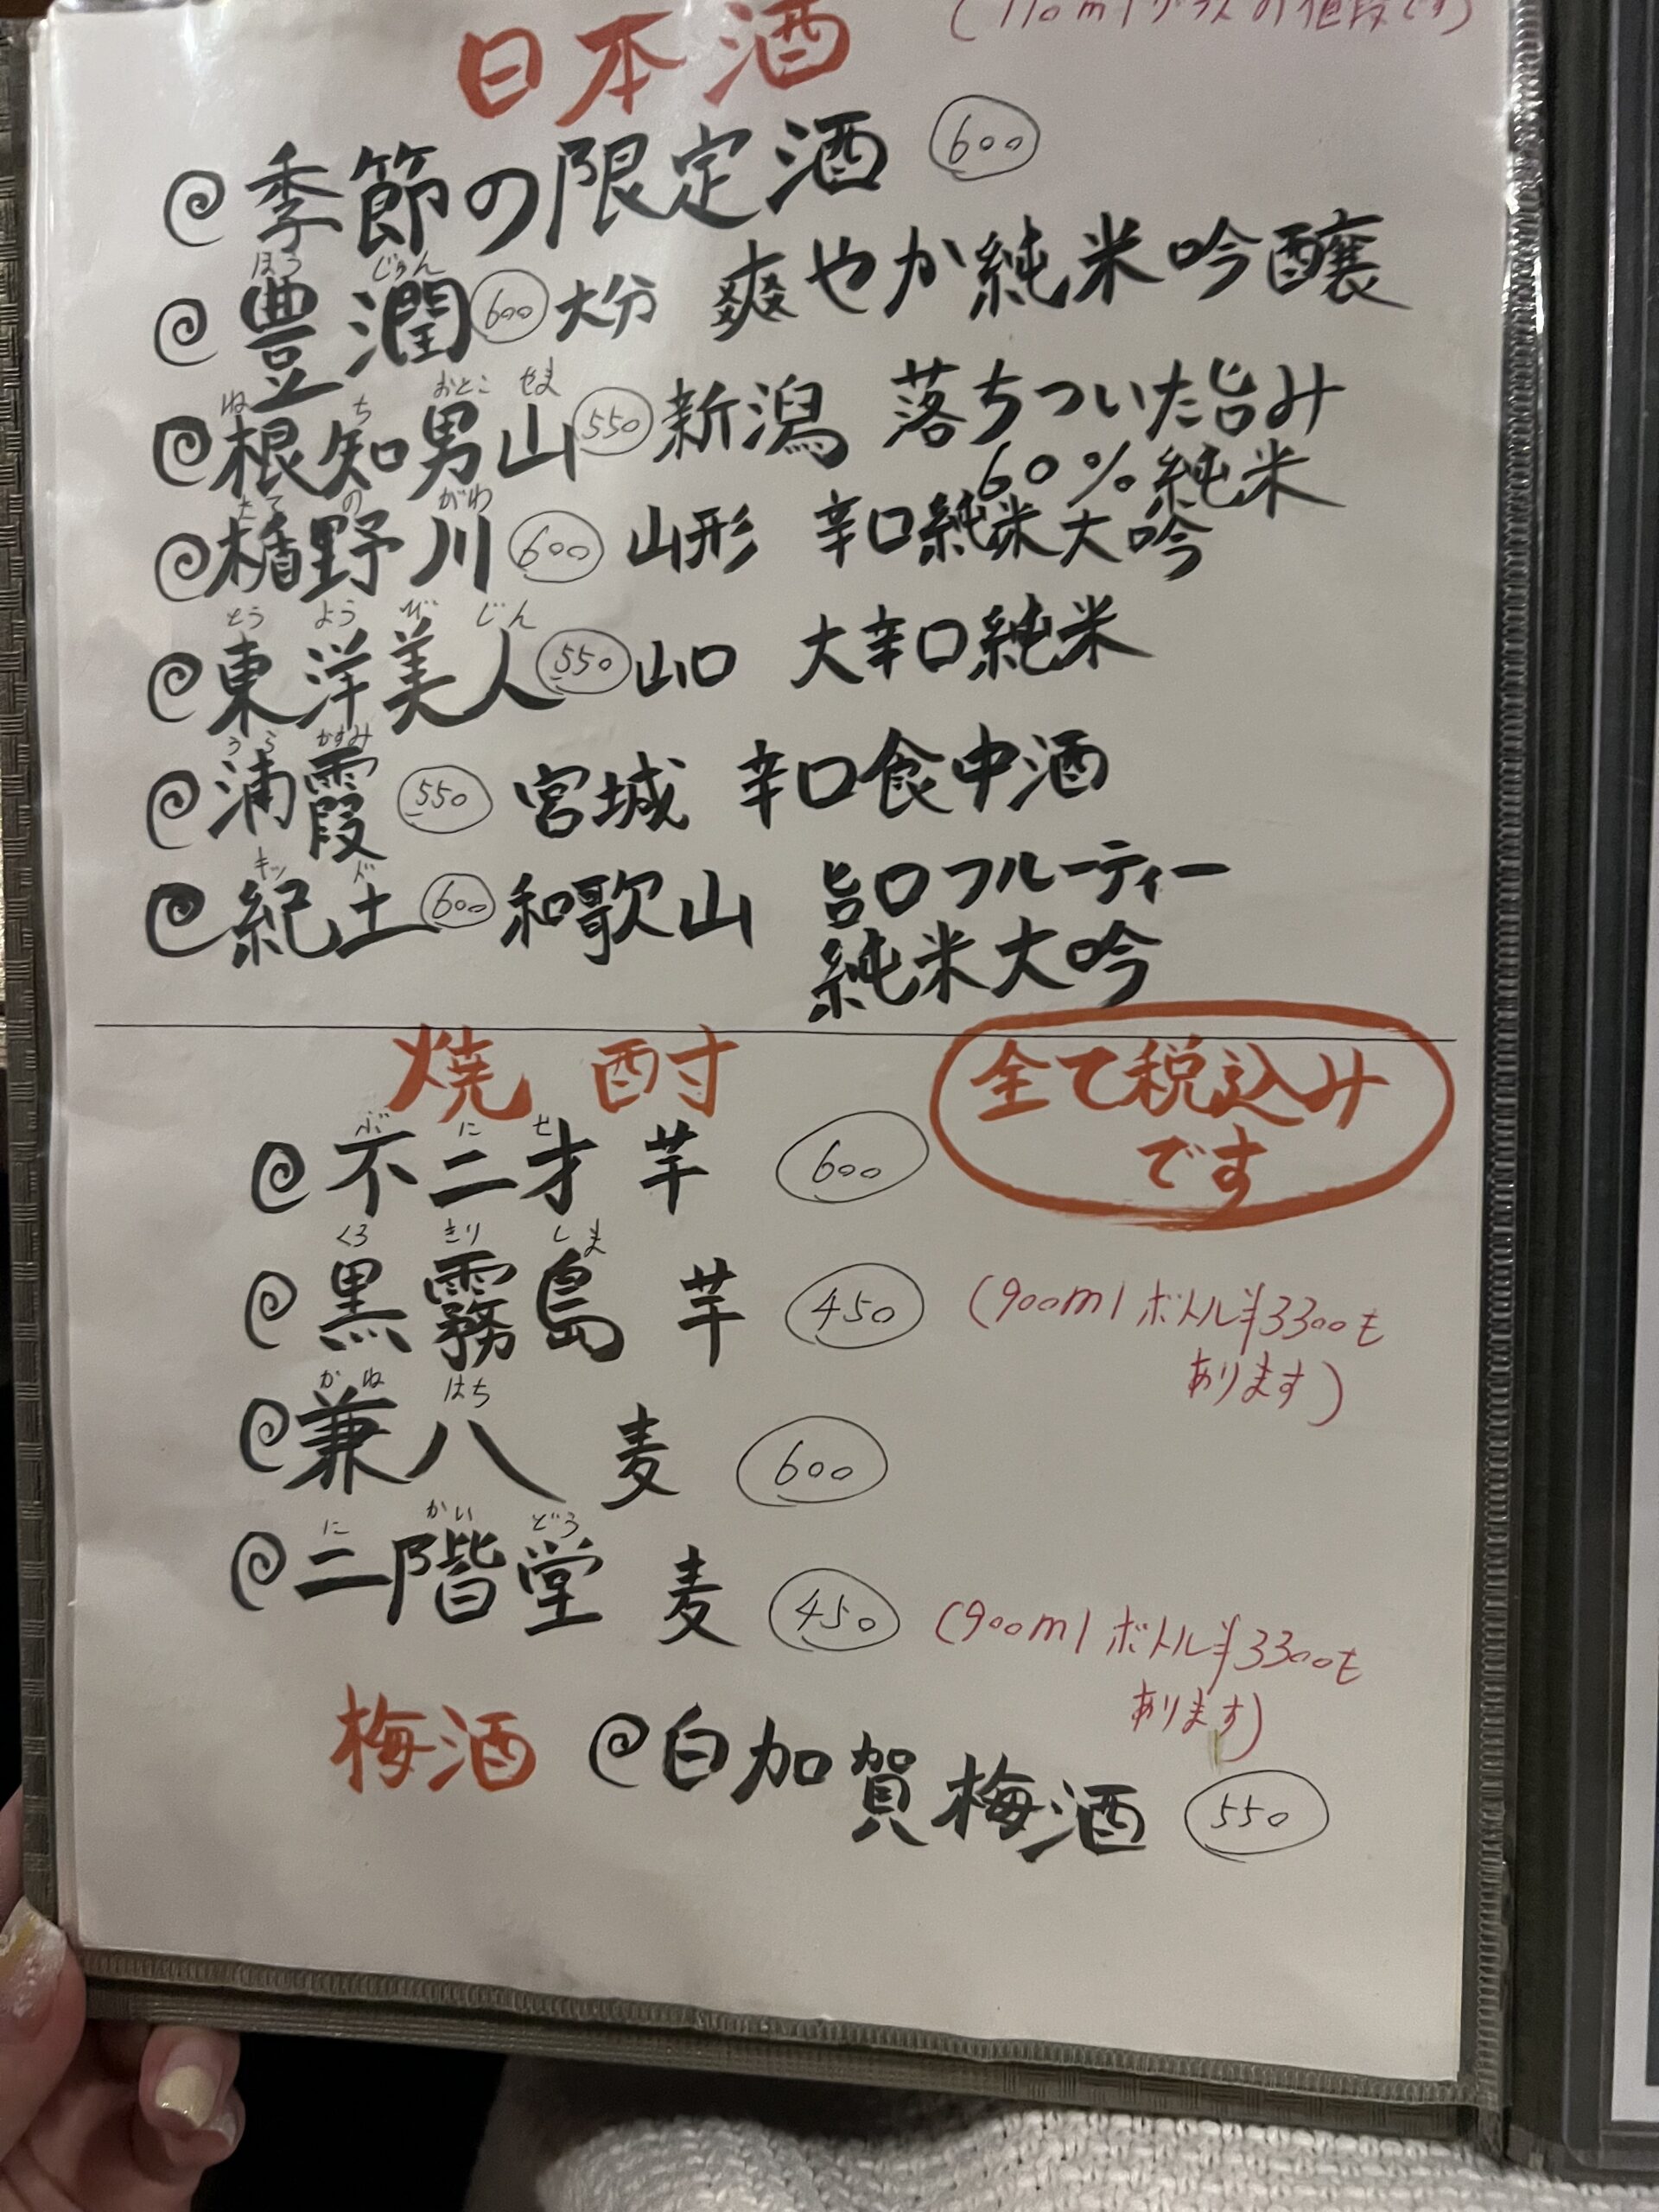 (110mlグラスの値段です)
日本酒
@季節の限定酒 600
ほう じゅん
@豊潤 600 大分 爽やか純米吟醸
ね ち おとこ やま
@根知男山 550 新潟 落ちついた旨み
60%純米
たて の がわ
@楯野川 600 山形 辛口純米大吟
とう よう び じん
@東洋美人 550 山口 大辛口純米
うら かすみ
@浦霞 550 宮城 辛口食中酒
キッ ド
@紀土 600 和歌山 旨口フルーティー
純米大吟
焼酎
全て税込み
です
ぶ に せ
@不二才 芋 600
くろ きり しま
@黒霧島 芋 450 (900mlボトル¥3300も
あります)
かね はち
@兼八 麦 600
に かい どう
@二階堂 麦 450 (900mlボトル¥3300も
あります)
梅酒 @白加賀梅酒 550